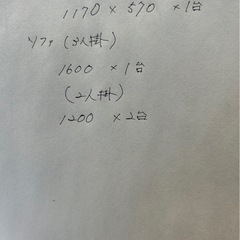 1170 × 570 × 1台
ソファ (3人掛)
1600 × 1台
(2人掛)
1200 × 2台